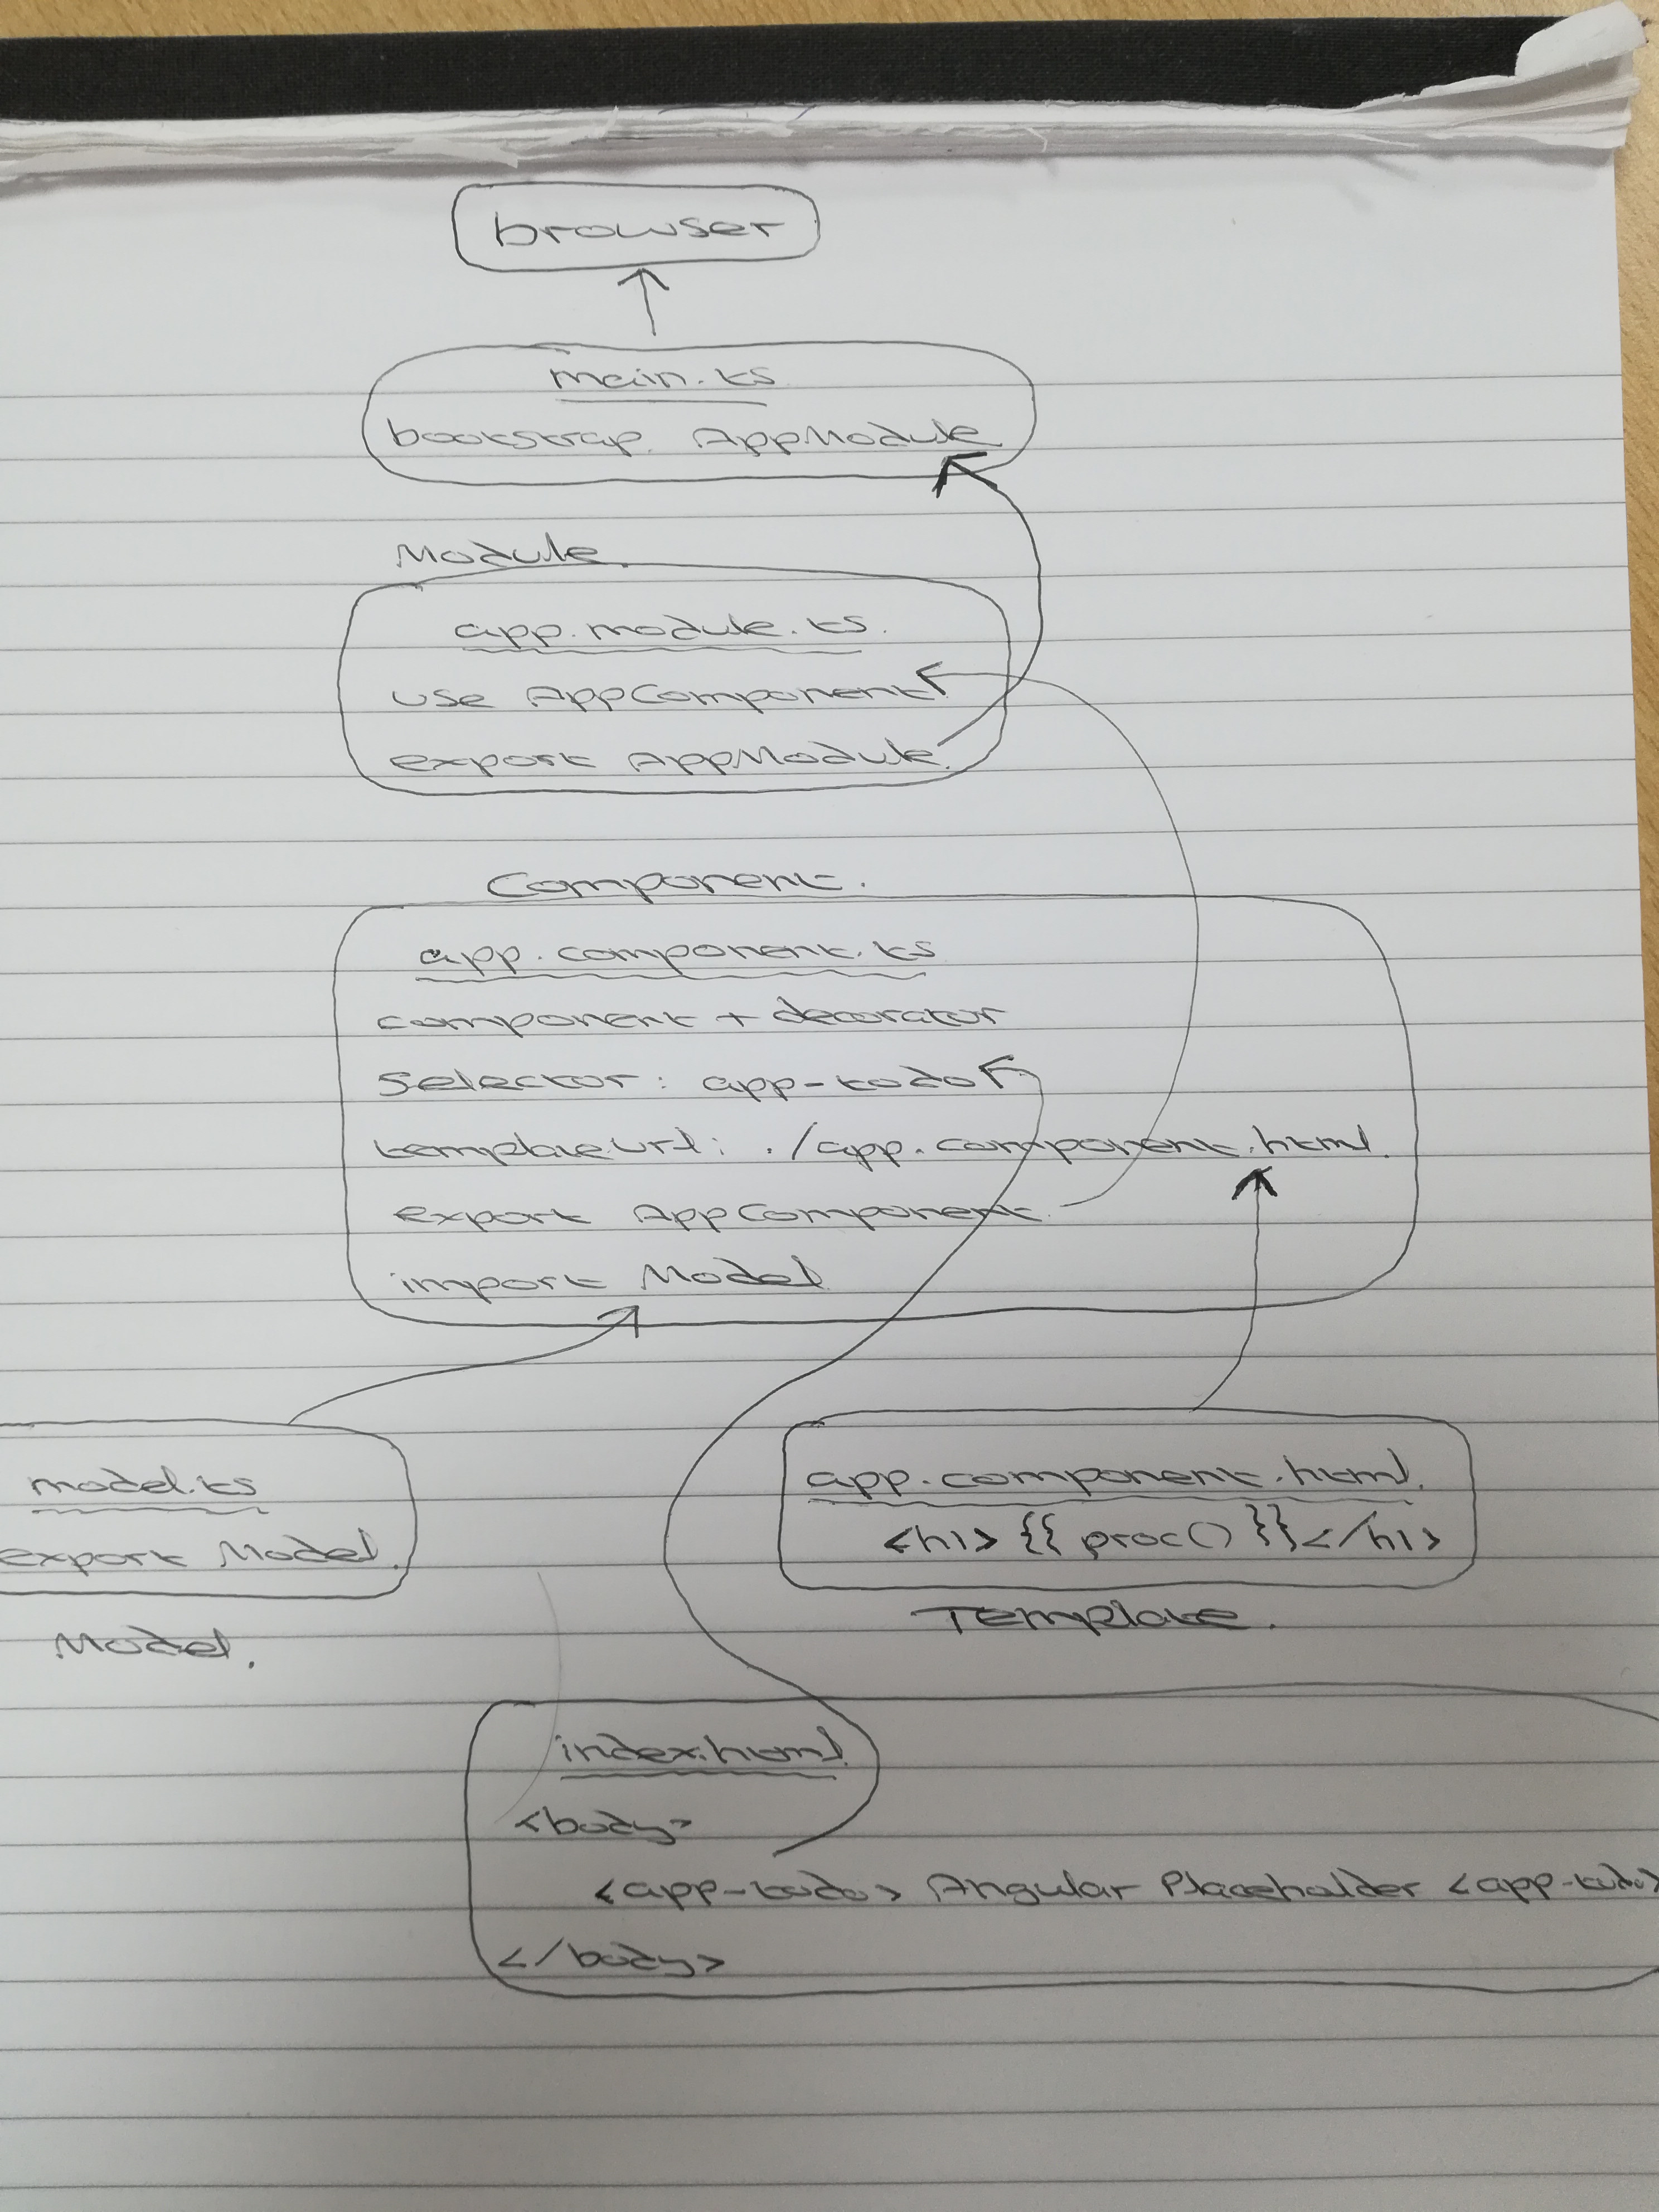 browser
main.ts
bootstrap AppModule
Module
app.module.ts
use AppComponent
export AppModule
Component.
app.component.ts
component + decorator
Selector: app-todo
templateurl: ./app.component.html
export AppComponent
import Model
model.ts
export Model
Model.
app.component.html
<h1> {{ proc() }}</h1>
Template.
index.html
<body>
<app-todo> Angular Placeholder <app-todo>
</body>